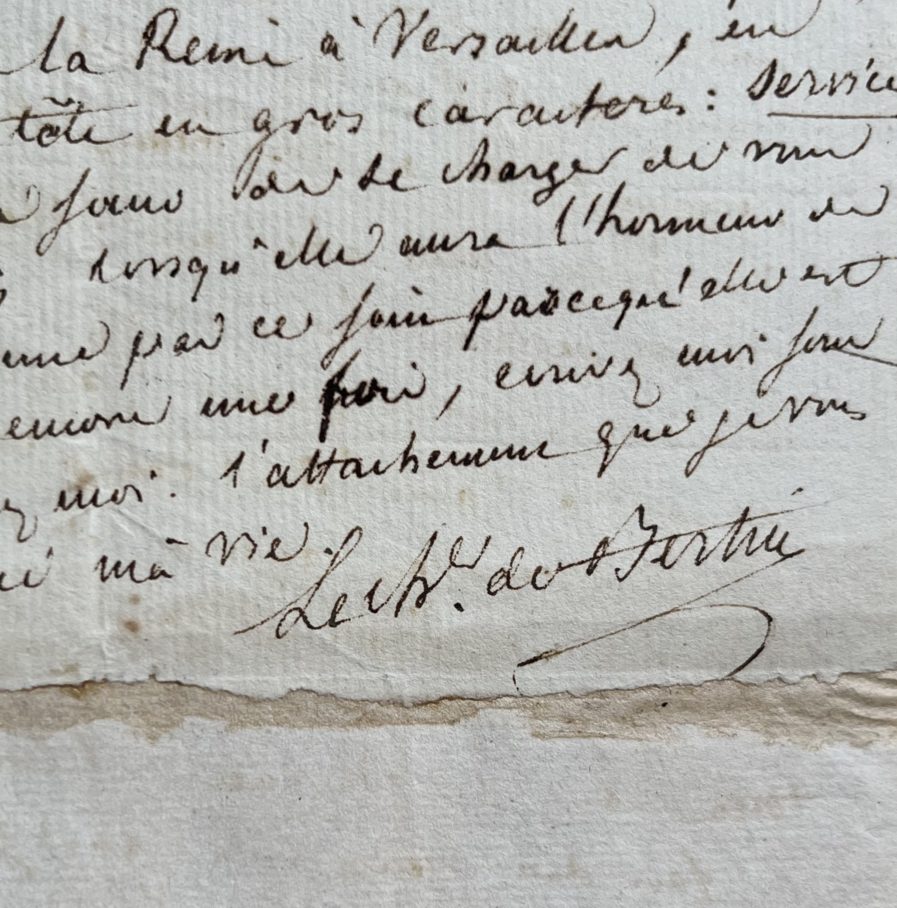 la Reine à Versailles, en
tête en gros caracteres: service
de se charger de
lorsqu'elle aura l'honneur de
par ce soin parcequ'elle est
encore une fois, ecrivez moi sans
moi. l'attachement que je vous
ma vie.
Le chr. de Bertin